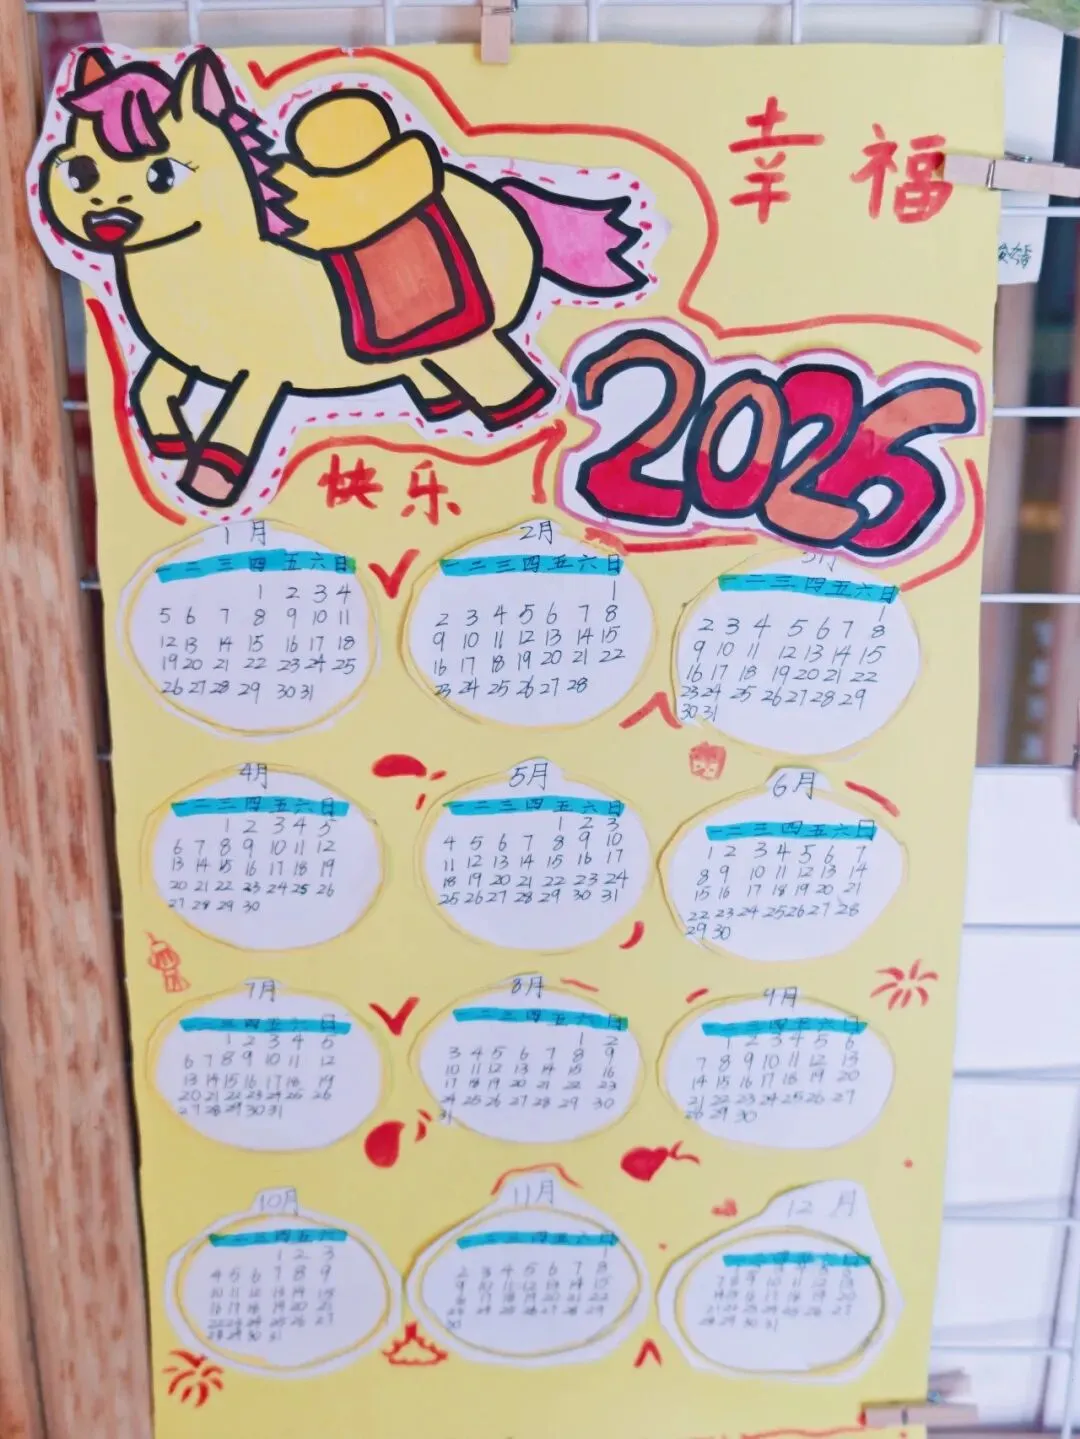 幸福
2026
快乐
1月
一二三四五六日
1 2 3 4
5 6 7 8 9 10 11
12 13 14 15 16 17 18
19 20 21 22 23 24 25
26 27 28 29 30 31
2月
一二三四五六日
1
2 3 4 5 6 7 8
9 10 11 12 13 14 15
16 17 18 19 20 21 22
23 24 25 26 27 28
3月
一二三四五六日
1
2 3 4 5 6 7 8
9 10 11 12 13 14 15
16 17 18 19 20 21 22
23 24 25 26 27 28 29
30 31
4月
一二三四五六日
1 2 3 4 5
6 7 8 9 10 11 12
13 14 15 16 17 18 19
20 21 22 23 24 25 26
27 28 29 30
5月
一二三四五六日
1 2 3
4 5 6 7 8 9 10
11 12 13 14 15 16 17
18 19 20 21 22 23 24
25 26 27 28 29 30 31
6月
一二三四五六日
1 2 3 4 5 6 7
8 9 10 11 12 13 14
15 16 17 18 19 20 21
22 23 24 25 26 27 28
29 30
7月
一二三四五六日
1 2 3 4 5
6 7 8 9 10 11 12
13 14 15 16 17 18 19
20 21 22 23 24 25 26
27 28 29 30 31
8月
一二三四五六日
1 2
3 4 5 6 7 8 9
10 11 12 13 14 15 16
17 18 19 20 21 22 23
24 25 26 27 28 29 30
31
9月
一二三四五六日
1 2 3 4 5 6
7 8 9 10 11 12 13
14 15 16 17 18 19 20
21 22 23 24 25 26 27
28 29 30
10月
一二三四五六
1 2 3
4 5 6 7 8 9
10 11 12 13 14 15
16 17 18 19 20 21
22 23 24 25 26 27
28 29 30 31
11月
一二三四五六日
1
2 3 4 5 6 7 8
9 10 11 12 13 14 15
16 17 18 19 20 21 22
23 24 25 26 27 28 29
30
12月
一二三四五六日
7 8 9 10 11 12 13
14 15 16 17 18 19 20
21 22 23 24 25 26 27
28 29 30 31